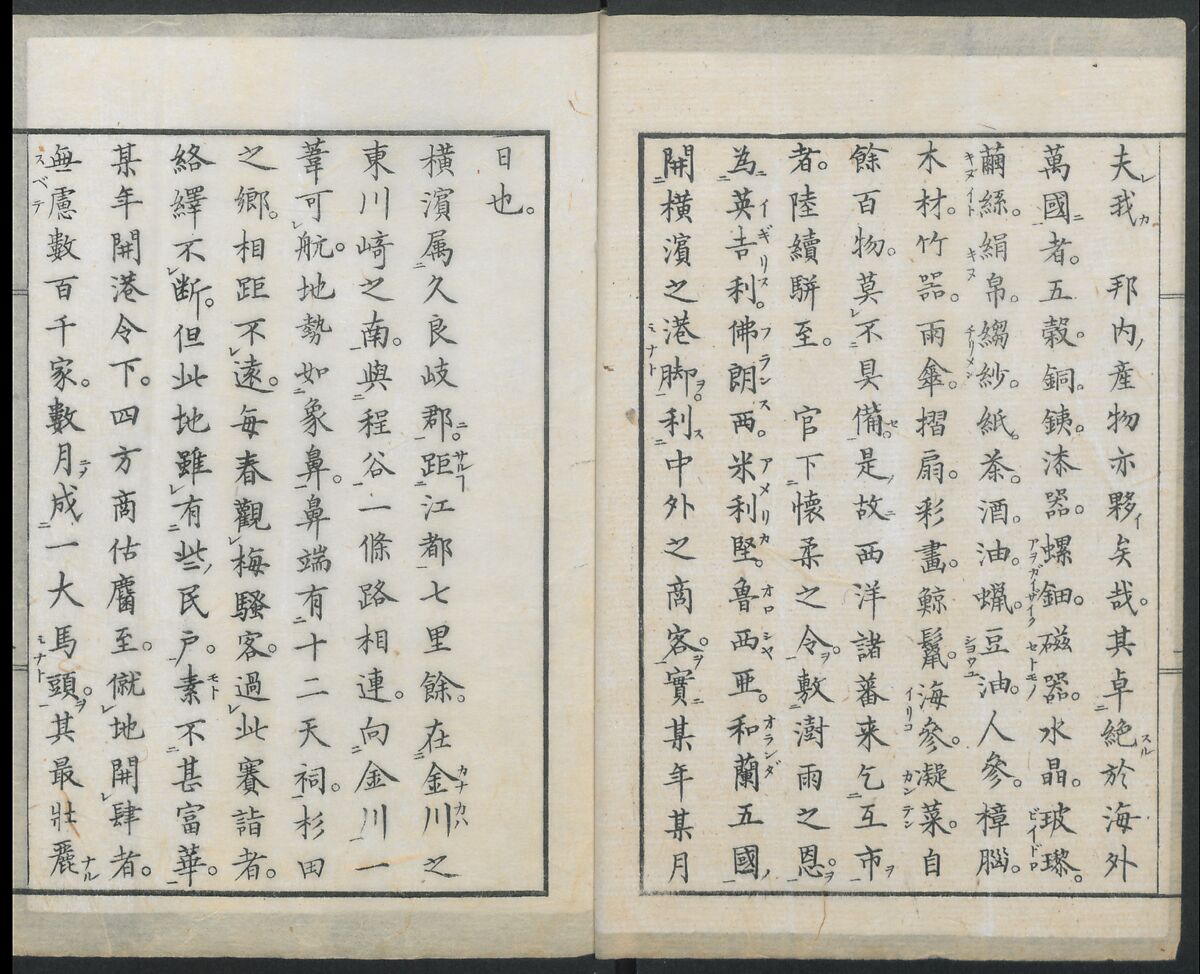 夫我　邦内産物亦夥矣哉。其卓絶於海外
萬國者。五穀。銅銕。漆器。螺鈿。磁器。水晶。玻瓈。
繭絲。絹帛。縐紗。紙。茶。酒。油。蠟。豆油。人參。樟腦。
木材。竹器。雨傘。摺扇。彩畫。鯨鬚。海參。凝菜。自
餘百物。莫不具備。是故西洋諸蕃来乞互市
者。陸續騈至。　官下懷柔之令。敷澍雨之恩。
為英吉利。佛朗西。米利堅。魯西亜。和蘭五國
開橫濱之港脚。利中外之商客。實某年某月
日也。
橫濱属久良岐郡。距江都七里餘。在金川之
東川﨑之南。與程谷一條路相連。向金川一
葦可航。地勢如象鼻。鼻端有十二天祠。杉田
之鄉。相距不遠。毎春觀梅騷客。過此賽詣者。
絡繹不断。但此地雖有些民戸。素不甚富華。
某年開港令下。四方商估麕至。僦地開肆者。
無慮數百千家。數月成一大馬頭。其最壯麗